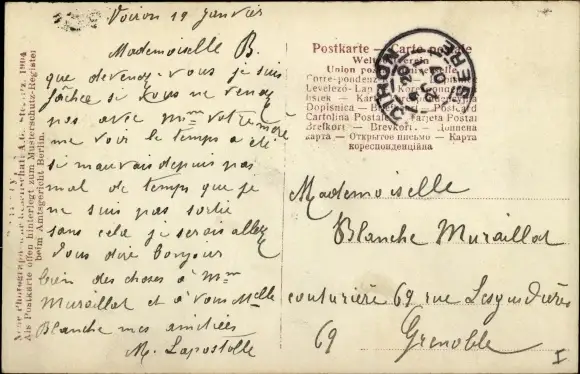 Voiron 19 Janvier
Mademoiselle B.
que devenez-vous je suis
fâchée si vous ne venez
pas avec Mme votre mère
me voir le temps a été
si mauvais depuis pas
mal de temps que je
ne suis pas sortie
sans cela je serais allée
vous dire bonjour
bien des choses à Mme
Muraillat et à vous Melle
Blanche mes amitiés
M. Lapostolle
Postkarte – Carte postale
Weltpostverein
Union postale universelle
Corre-pondenz
Levelező-Lap
Dopisnice
Postcard
Cartolina Postale
Tarjeta Postal
Brefkort – Brevkort – Дописна
карта – Открытое письмо – Карта
кореспонденційна
VOIRON
ISERE
Mademoiselle
Blanche Muraillat
couturière 69 rue Lesguidières
69 Grenoble
I
Neue Photographische Gesellschaft A.G. Steglitz 1904
Als Postkarte offen hinterlegt zum Musterschutz-Register
beim Amtsgericht Berlin.